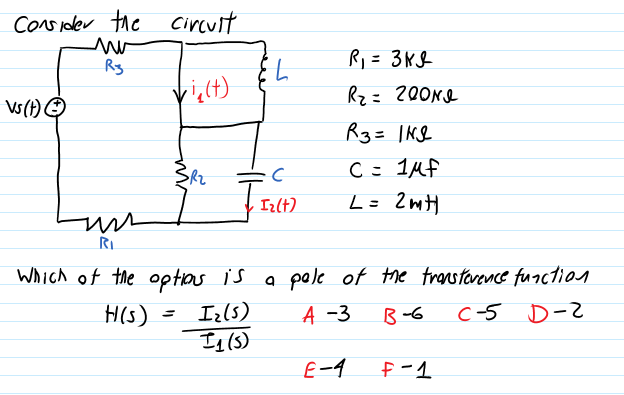 Consider the circuit
R3
L
i1(t)
Vs(t)
R2
C
I2(t)
R1
R1 = 3KΩ
R2 = 200KΩ
R3 = 1KΩ
C = 1μF
L = 2mH
Which of the options is a pole of the transference function
H(s) = I2(s) / I1(s)
A -3 B -6 C -5 D -2
E -4 F -1